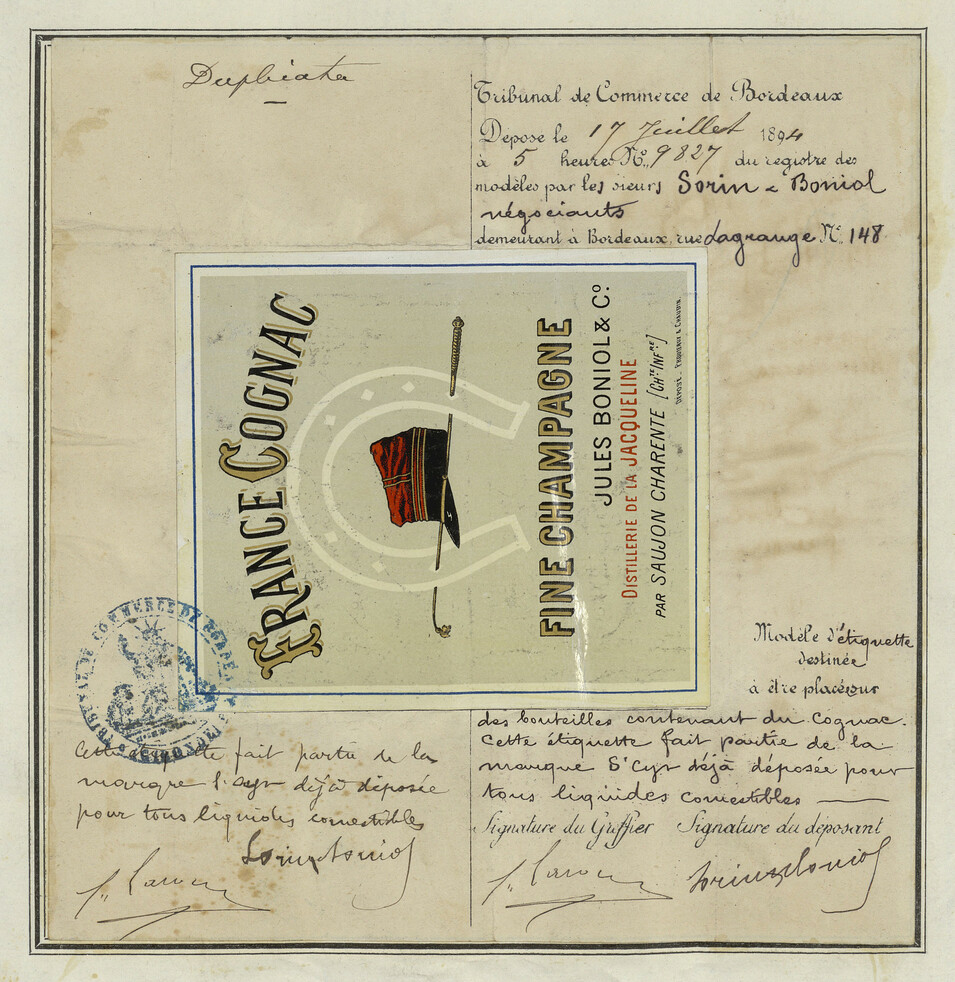 Duplicata
Tribunal de Commerce de Bordeaux
Déposé le 17 Juillet 1894
à 5 heures No. 9827 du registre des
modèles par les sieurs Sorin & Boniol
négociants
demeurant à Bordeaux, rue Lagrange No. 148
FRANCE COGNAC
FINE CHAMPAGNE
JULES BONIOL & Co.
DISTILLERIE DE LA JACQUELINE
PAR SAUJON CHARENTE [CHte INFRE]
TRIBUNAL DE COMMERCE DE BORDEAUX
Modèle d'étiquette
destinée
à être placée sur
des bouteilles contenant du Cognac.
Cette étiquette fait partie de la
marque St Cyr déjà déposée pour
tous liquides comestibles
Signature du Greffier Signature du déposant
Sorin & Boniol
Cette étiquette fait partie de la
marque St Cyr déjà déposée
pour tous liquides comestibles
Sorin & Boniol